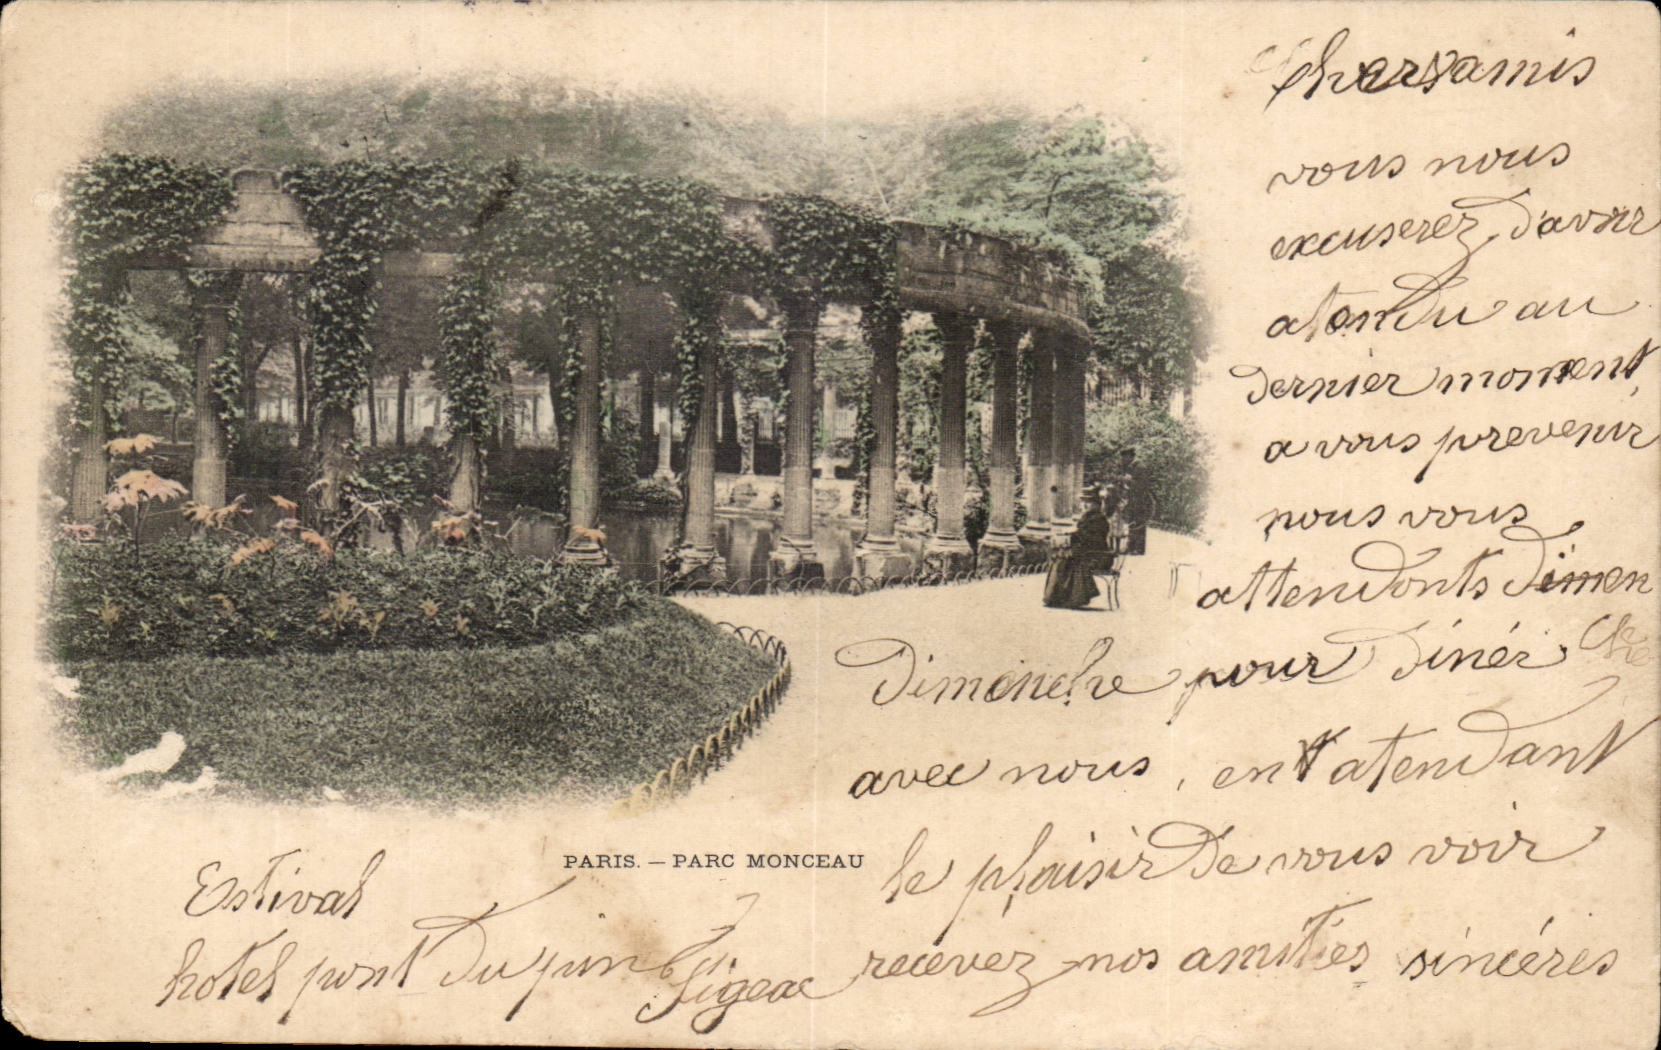 Chers amis
vous nous
excuserez d'avoir
atendu au
dernier moment
a vous prevenir
nous vous
attendonts dimen
Dimenche pour dinér che
avec nous, ent atendant
le plaisir de vous voir
recevez nos amitiés sincéres
PARIS. — PARC MONCEAU
Estival
hotel pont du pin
Figeac